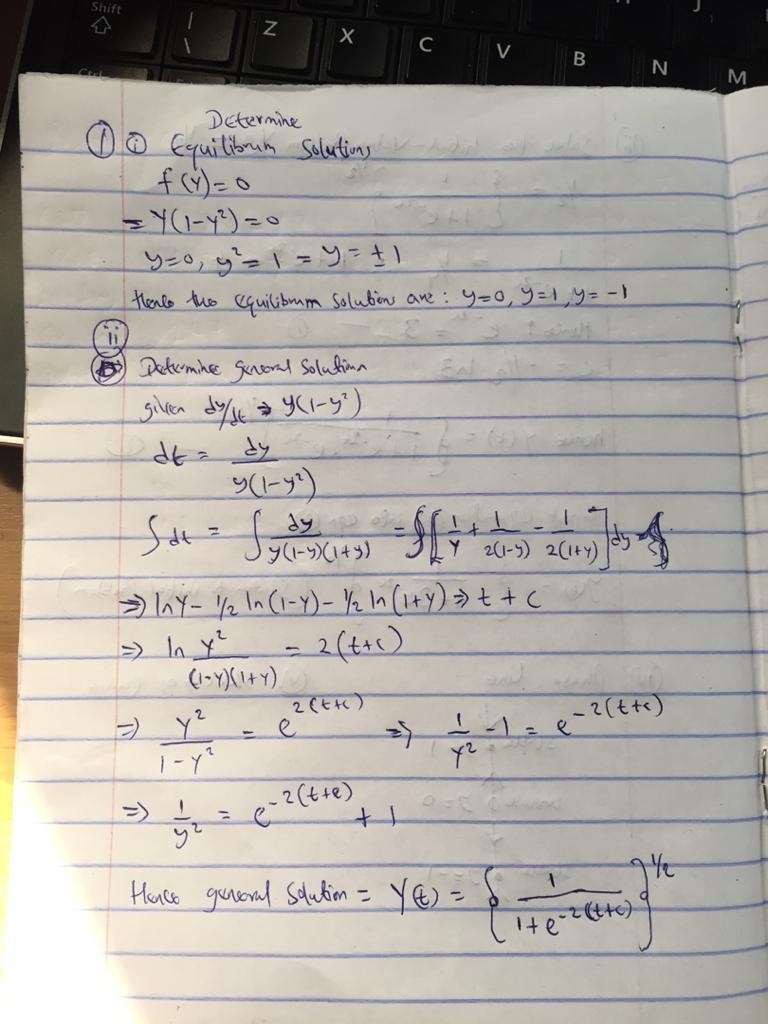 Shift
| \ Z X C V B N M
Ctrl
Determine
① ⓘ Equilibrum Solutions
f(y)=0
= Y(1-y²)=0
y=0, y²=1 = y=±1
Hence the equilibrium solution are: y=0, y=1, y=-1
ii
Determine general solution
given dy/dt ⇒ y(1-y²)
dt = dy / y(1-y²)
∫dt = ∫ dy / y(1-y)(1+y) = ∫[1/y + 1/2(1-y) - 1/2(1+y)]dy
⇒ ln y - 1/2 ln(1-y) - 1/2 ln(1+y) ⇒ t + c
⇒ ln y² / (1-y)(1+y) = 2(t+c)
⇒ y² / 1-y² = e^2(t+c) ⇒ 1/y² - 1 = e^-2(t+c)
⇒ 1/y² = e^-2(t+c) + 1
Hence general solution = Y(t) = {1 / 1+e^-2(t+c)}^1/2